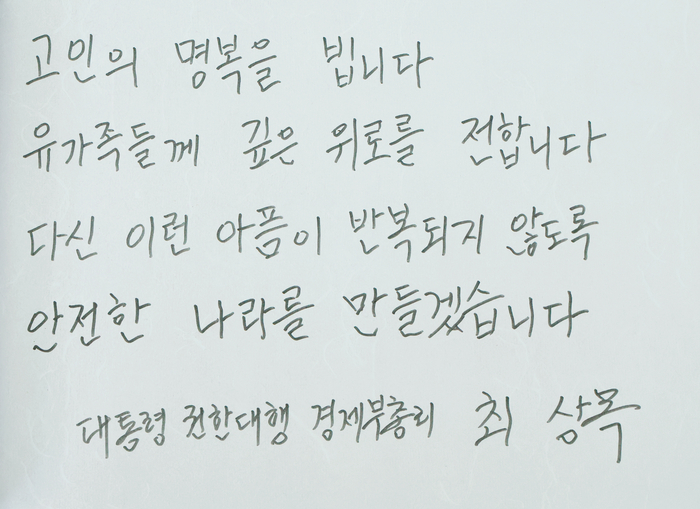 고인의 명복을 빕니다
유가족들께 깊은 위로를 전합니다
다신 이런 아픔이 반복되지 않도록
안전한 나라를 만들겠습니다
대통령 권한대행 경제부총리 최 상목